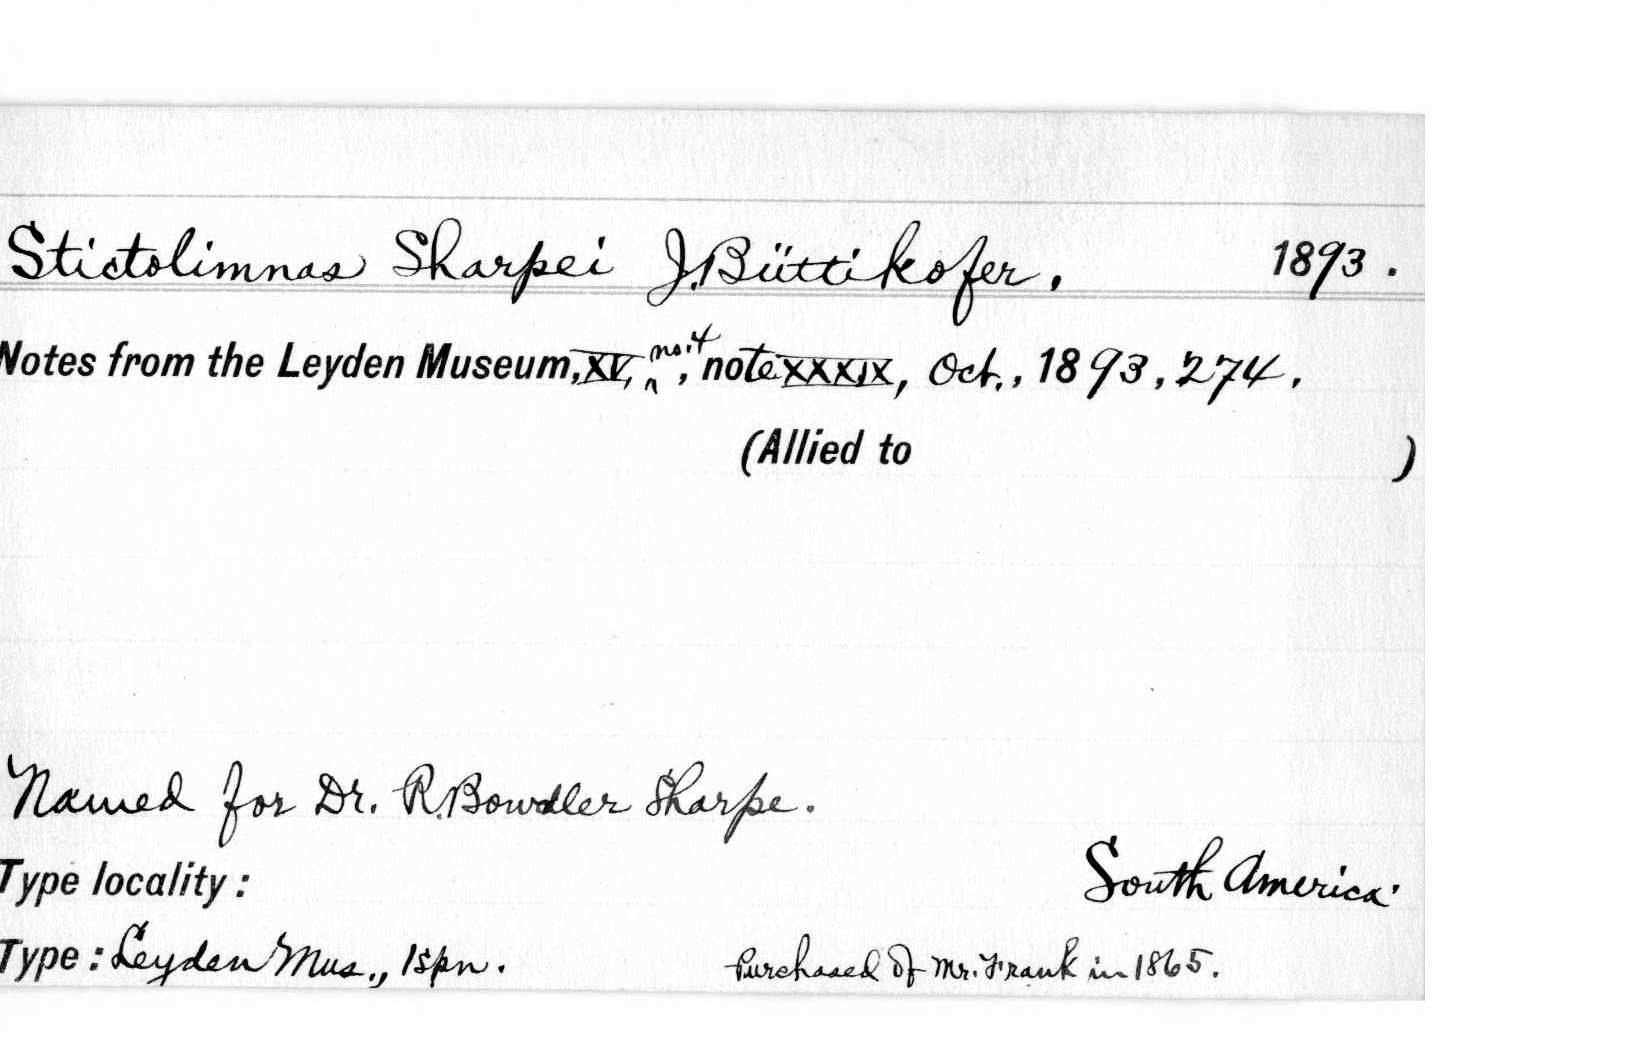 Stictolimnas Sharpei J. Büttikofer. 1893.
Notes from the Leyden Museum, XV, no. 4, note XXXIX, Oct., 1893, 274.
(Allied to )
Named for Dr. R. Bowdler Sharpe.
Type locality: South America.
Type: Leyden Mus., 1 spn. Purchased of Mr. Frank in 1865.